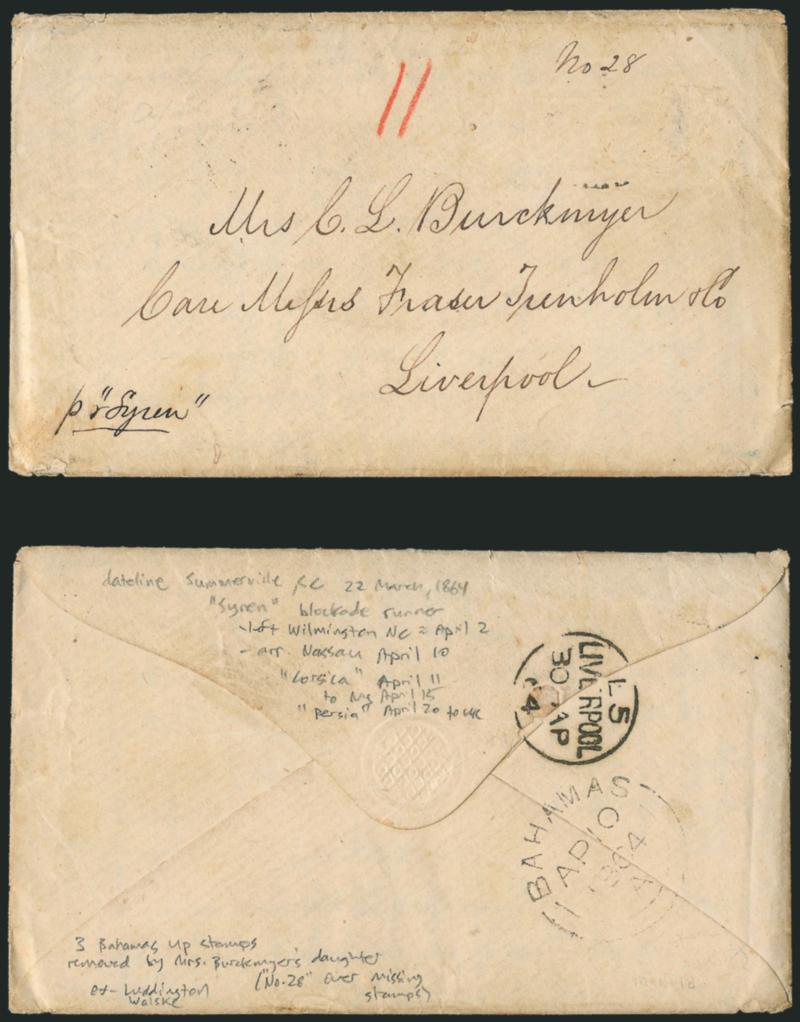 No 28
11
Mrs C. L. Burckmyer
Care Messrs Fraser Trenholm & Co
Liverpool
pr "Syren"
dateline Summerville, SC 22 March, 1864
"Syren" blockade runner
- left Wilmington NC = April 2
- arr. Nassau April 10
"Corsica" April 11
to NY April 15
"Persia" April 20 to UK
L 5
LIVERPOOL
30 AP
64
BAHAMAS
AP 10
1864
A
3 Bahamas 4p stamps
removed by Mrs. Burckmyer's daughter
("No. 28" over missing
stamps)
ex- Luddington
Walske